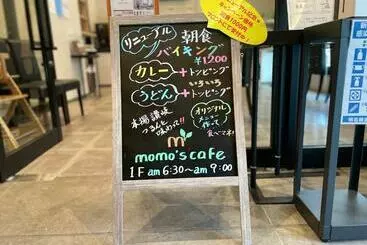 リニューアル
朝食
バイキング
¥1200
カレー+トッピング
いろいろ
うどん+トッピング
本場讃岐
つるんと
味わって!!
オリジナル
メニュー
作って
食べてネ
m
momo's cafe
1F am 6:30~am 9:00